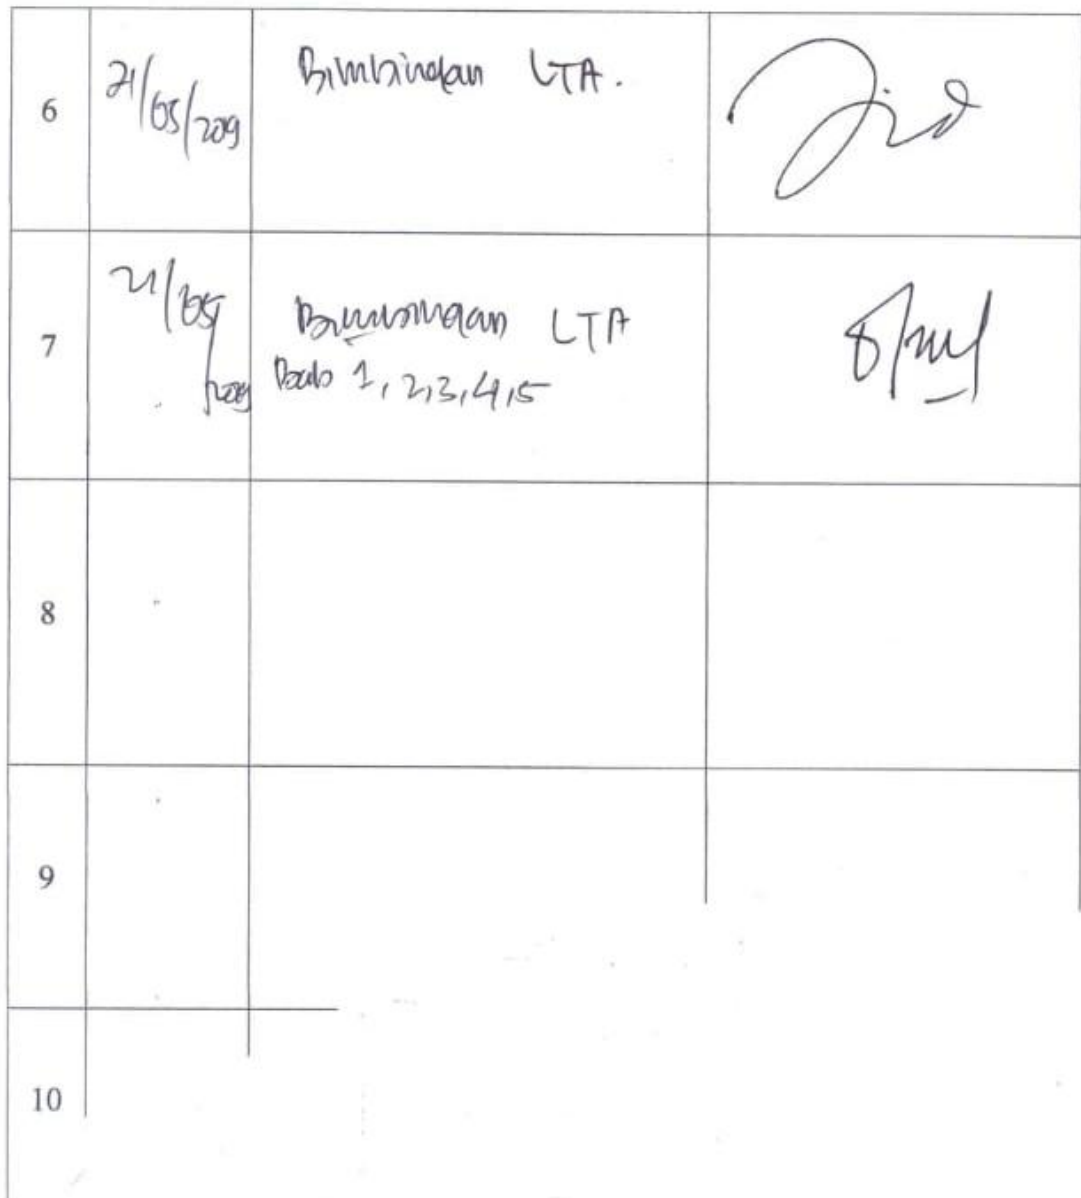 6
21/05/2019
Bimbingan LTA.
7
21/05/2019
Bimbingan LTA
Bab 1, 2, 3, 4, 5
8
9
10